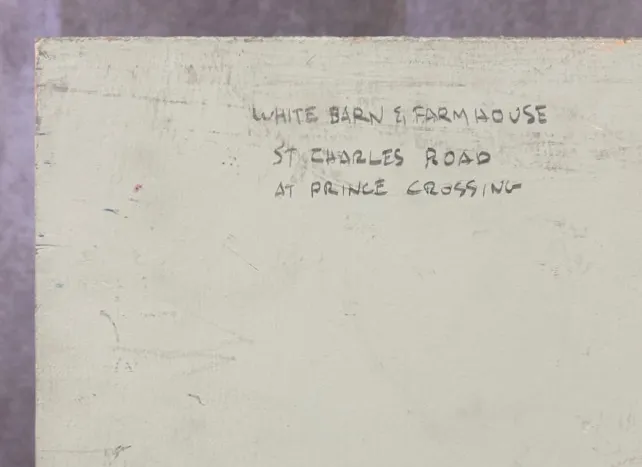 WHITE BARN & FARM HOUSE
ST CHARLES ROAD
AT PRINCE CROSSING